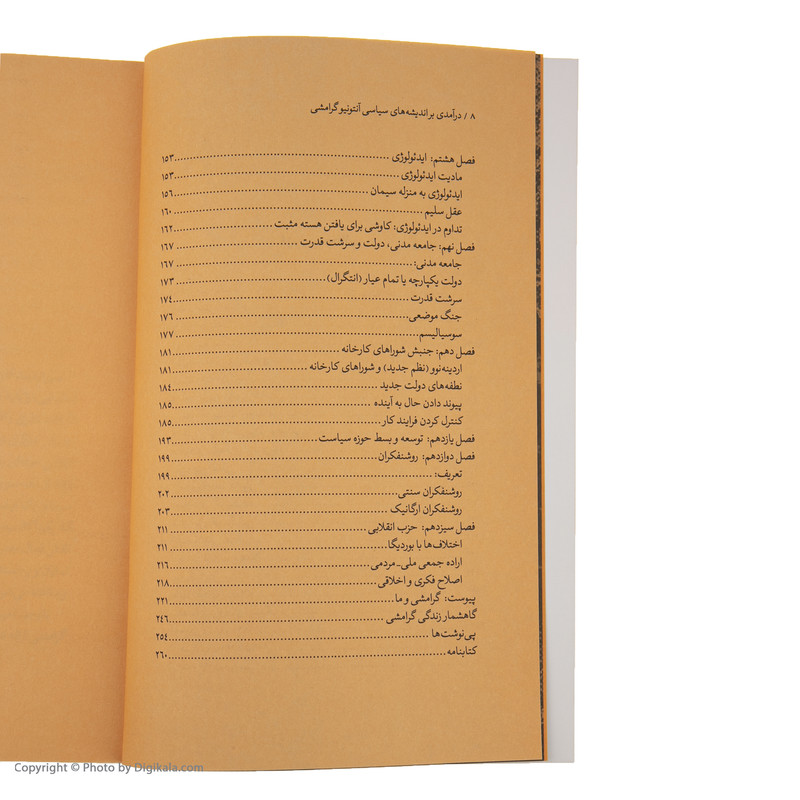 ۸ / درآمدی بر اندیشه‌های سیاسی آنتونیو گرامشی
فصل هشتم: ایدئولوژی ........ ۱۵۳
مادیت ایدئولوژی ........ ۱۵۳
ایدئولوژی به منزله سیمان ........ ۱۵۶
عقل سلیم ........ ۱۶۰
تداوم در ایدئولوژی: کاوشی برای یافتن هسته مثبت ........ ۱۶۲
فصل نهم: جامعه مدنی، دولت و سرشت قدرت ........ ۱۶۷
جامعه مدنی: ........ ۱۶۷
دولت یکپارچه یا تمام عیار (انتگرال) ........ ۱۷۳
سرشت قدرت ........ ۱۷۴
جنگ موضعی ........ ۱۷۶
سوسیالیسم ........ ۱۷۷
فصل دهم: جنبش شوراهای کارخانه ........ ۱۸۱
اردینه‌نوو (نظم جدید) و شوراهای کارخانه ........ ۱۸۱
نطفه‌های دولت جدید ........ ۱۸۴
پیوند دادن حال به آینده ........ ۱۸۵
کنترل کردن فرایند کار ........ ۱۸۵
فصل یازدهم: توسعه و بسط حوزه سیاست ........ ۱۹۳
فصل دوازدهم: روشنفکران ........ ۱۹۹
تعریف: ........ ۱۹۹
روشنفکران سنتی ........ ۲۰۲
روشنفکران ارگانیک ........ ۲۰۳
فصل سیزدهم: حزب انقلابی ........ ۲۱۱
اختلاف‌ها با بوردیگا ........ ۲۱۱
اراده جمعی ملی-مردمی ........ ۲۱۶
اصلاح فکری و اخلاقی ........ ۲۱۸
پیوست: گرامشی و ما ........ ۲۲۱
گاهشمار زندگی گرامشی ........ ۲۴۶
پی‌نوشت‌ها ........ ۲۵۴
کتابنامه ........ ۲۶۰
Copyright © Photo by Digikala.com